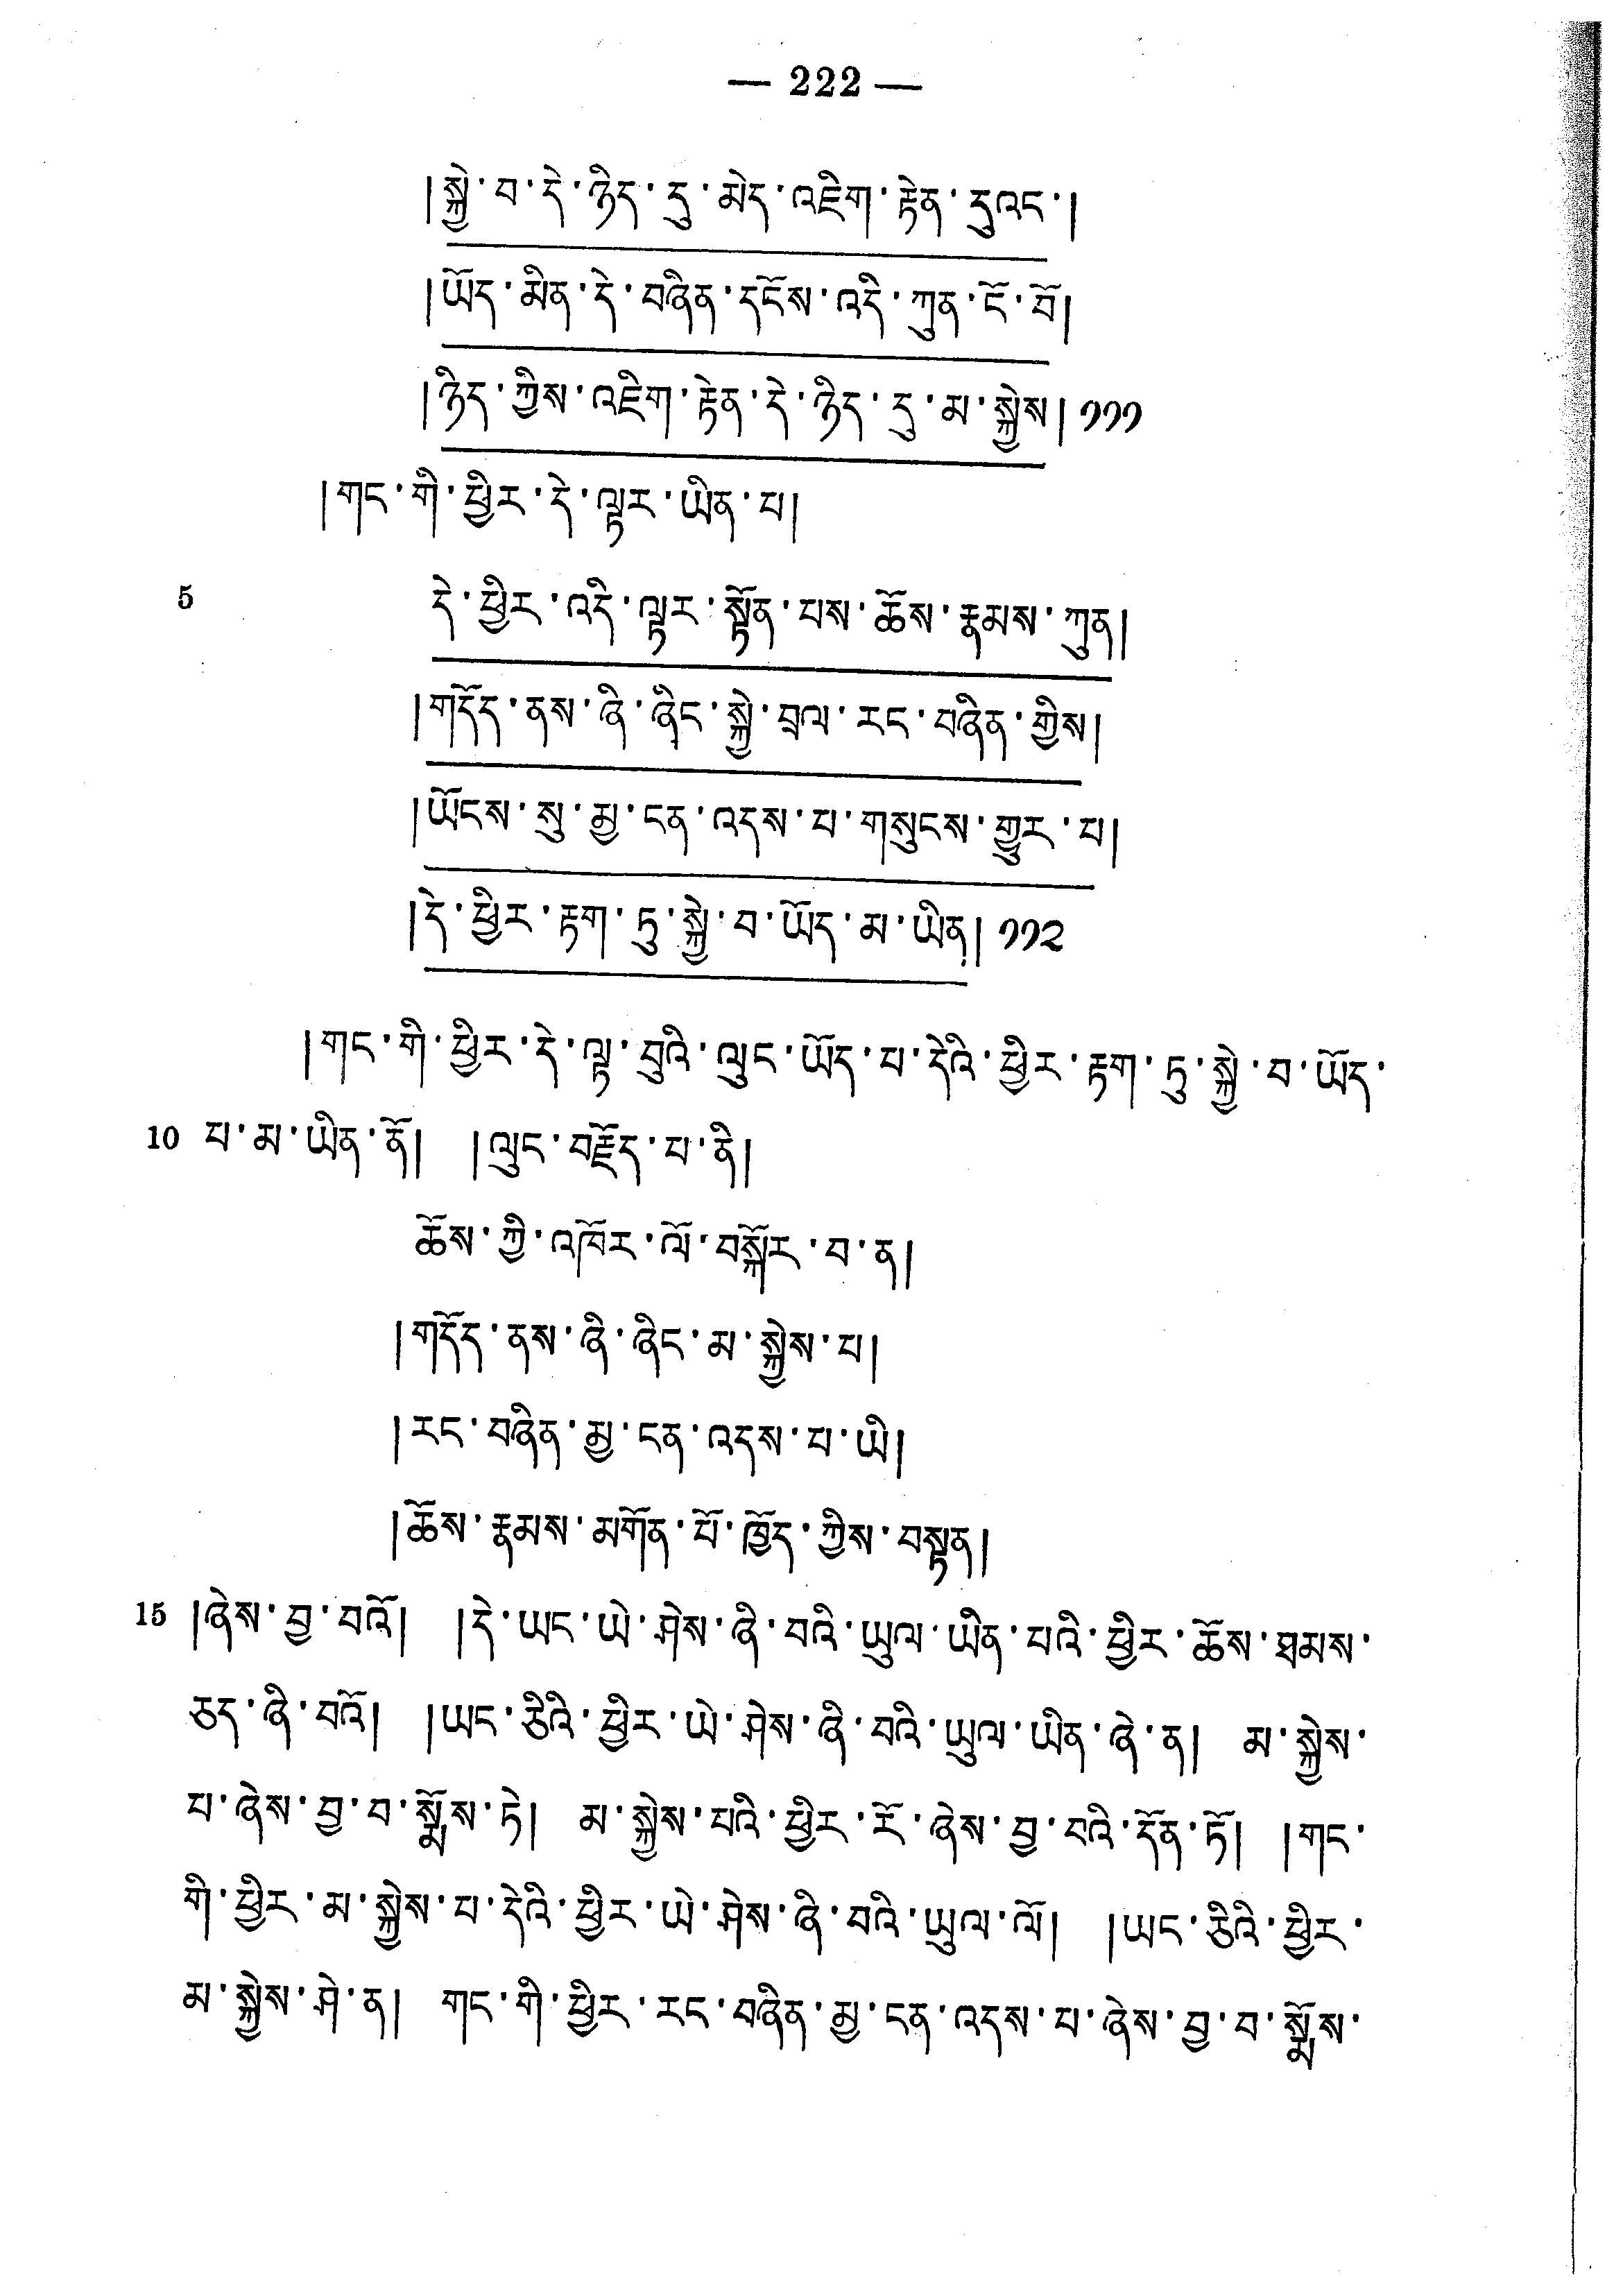 — 222 —
།སྐྱེ་བ་དེ་ཉིད་དུ་མེད་འཇིག་རྟེན་དུའང་།
།ཡོད་མིན་དེ་བཞིན་དངོས་འདི་ཀུན་ངོ་བོ།
།ཉིད་ཀྱིས་འཇིག་རྟེན་དེ་ཉིད་དུ་མ་སྐྱེས། ༡༡༡
།གང་གི་ཕྱིར་དེ་ལྟར་ཡིན་པ།
5 དེ་ཕྱིར་འདི་ལྟར་སྟོན་པས་ཆོས་རྣམས་ཀུན།
།གདོད་ནས་ཞི་ཞིང་སྐྱེ་བྲལ་རང་བཞིན་གྱིས།
།ཡོངས་སུ་མྱ་ངན་འདས་པ་གསུངས་གྱུར་པ།
།དེ་ཕྱིར་རྟག་ཏུ་སྐྱེ་བ་ཡོད་མ་ཡིན། ༡༡༢
།གང་གི་ཕྱིར་དེ་ལྟ་བུའི་ལུང་ཡོད་པ་དེའི་ཕྱིར་རྟག་ཏུ་སྐྱེ་བ་ཡོད་
10 པ་མ་ཡིན་ནོ། །ལུང་བརྗོད་པ་ནི།
ཆོས་ཀྱི་འཁོར་ལོ་བསྐོར་བ་ན།
།གདོད་ནས་ཞི་ཞིང་མ་སྐྱེས་པ།
།རང་བཞིན་མྱ་ངན་འདས་པ་ཡི།
།ཆོས་རྣམས་མགོན་པོ་ཁྱོད་ཀྱིས་བསྟན།
15 །ཞེས་བྱ་བའོ། །དེ་ཡང་ཡེ་ཤེས་ཞི་བའི་ཡུལ་ཡིན་པའི་ཕྱིར་ཆོས་ཐམས་
ཅད་ཞི་བའོ། །ཡང་ཅིའི་ཕྱིར་ཡེ་ཤེས་ཞི་བའི་ཡུལ་ཡིན་ཞེ་ན། མ་སྐྱེས་
པ་ཞེས་བྱ་བ་སྨོས་ཏེ། མ་སྐྱེས་པའི་ཕྱིར་རོ་ཞེས་བྱ་བའི་དོན་ཏོ། །གང་
གི་ཕྱིར་མ་སྐྱེས་པ་དེའི་ཕྱིར་ཡེ་ཤེས་ཞི་བའི་ཡུལ་ལོ། །ཡང་ཅིའི་ཕྱིར་
མ་སྐྱེས་ཤེ་ན། གང་གི་ཕྱིར་རང་བཞིན་མྱ་ངན་འདས་པ་ཞེས་བྱ་བ་སྨོས་